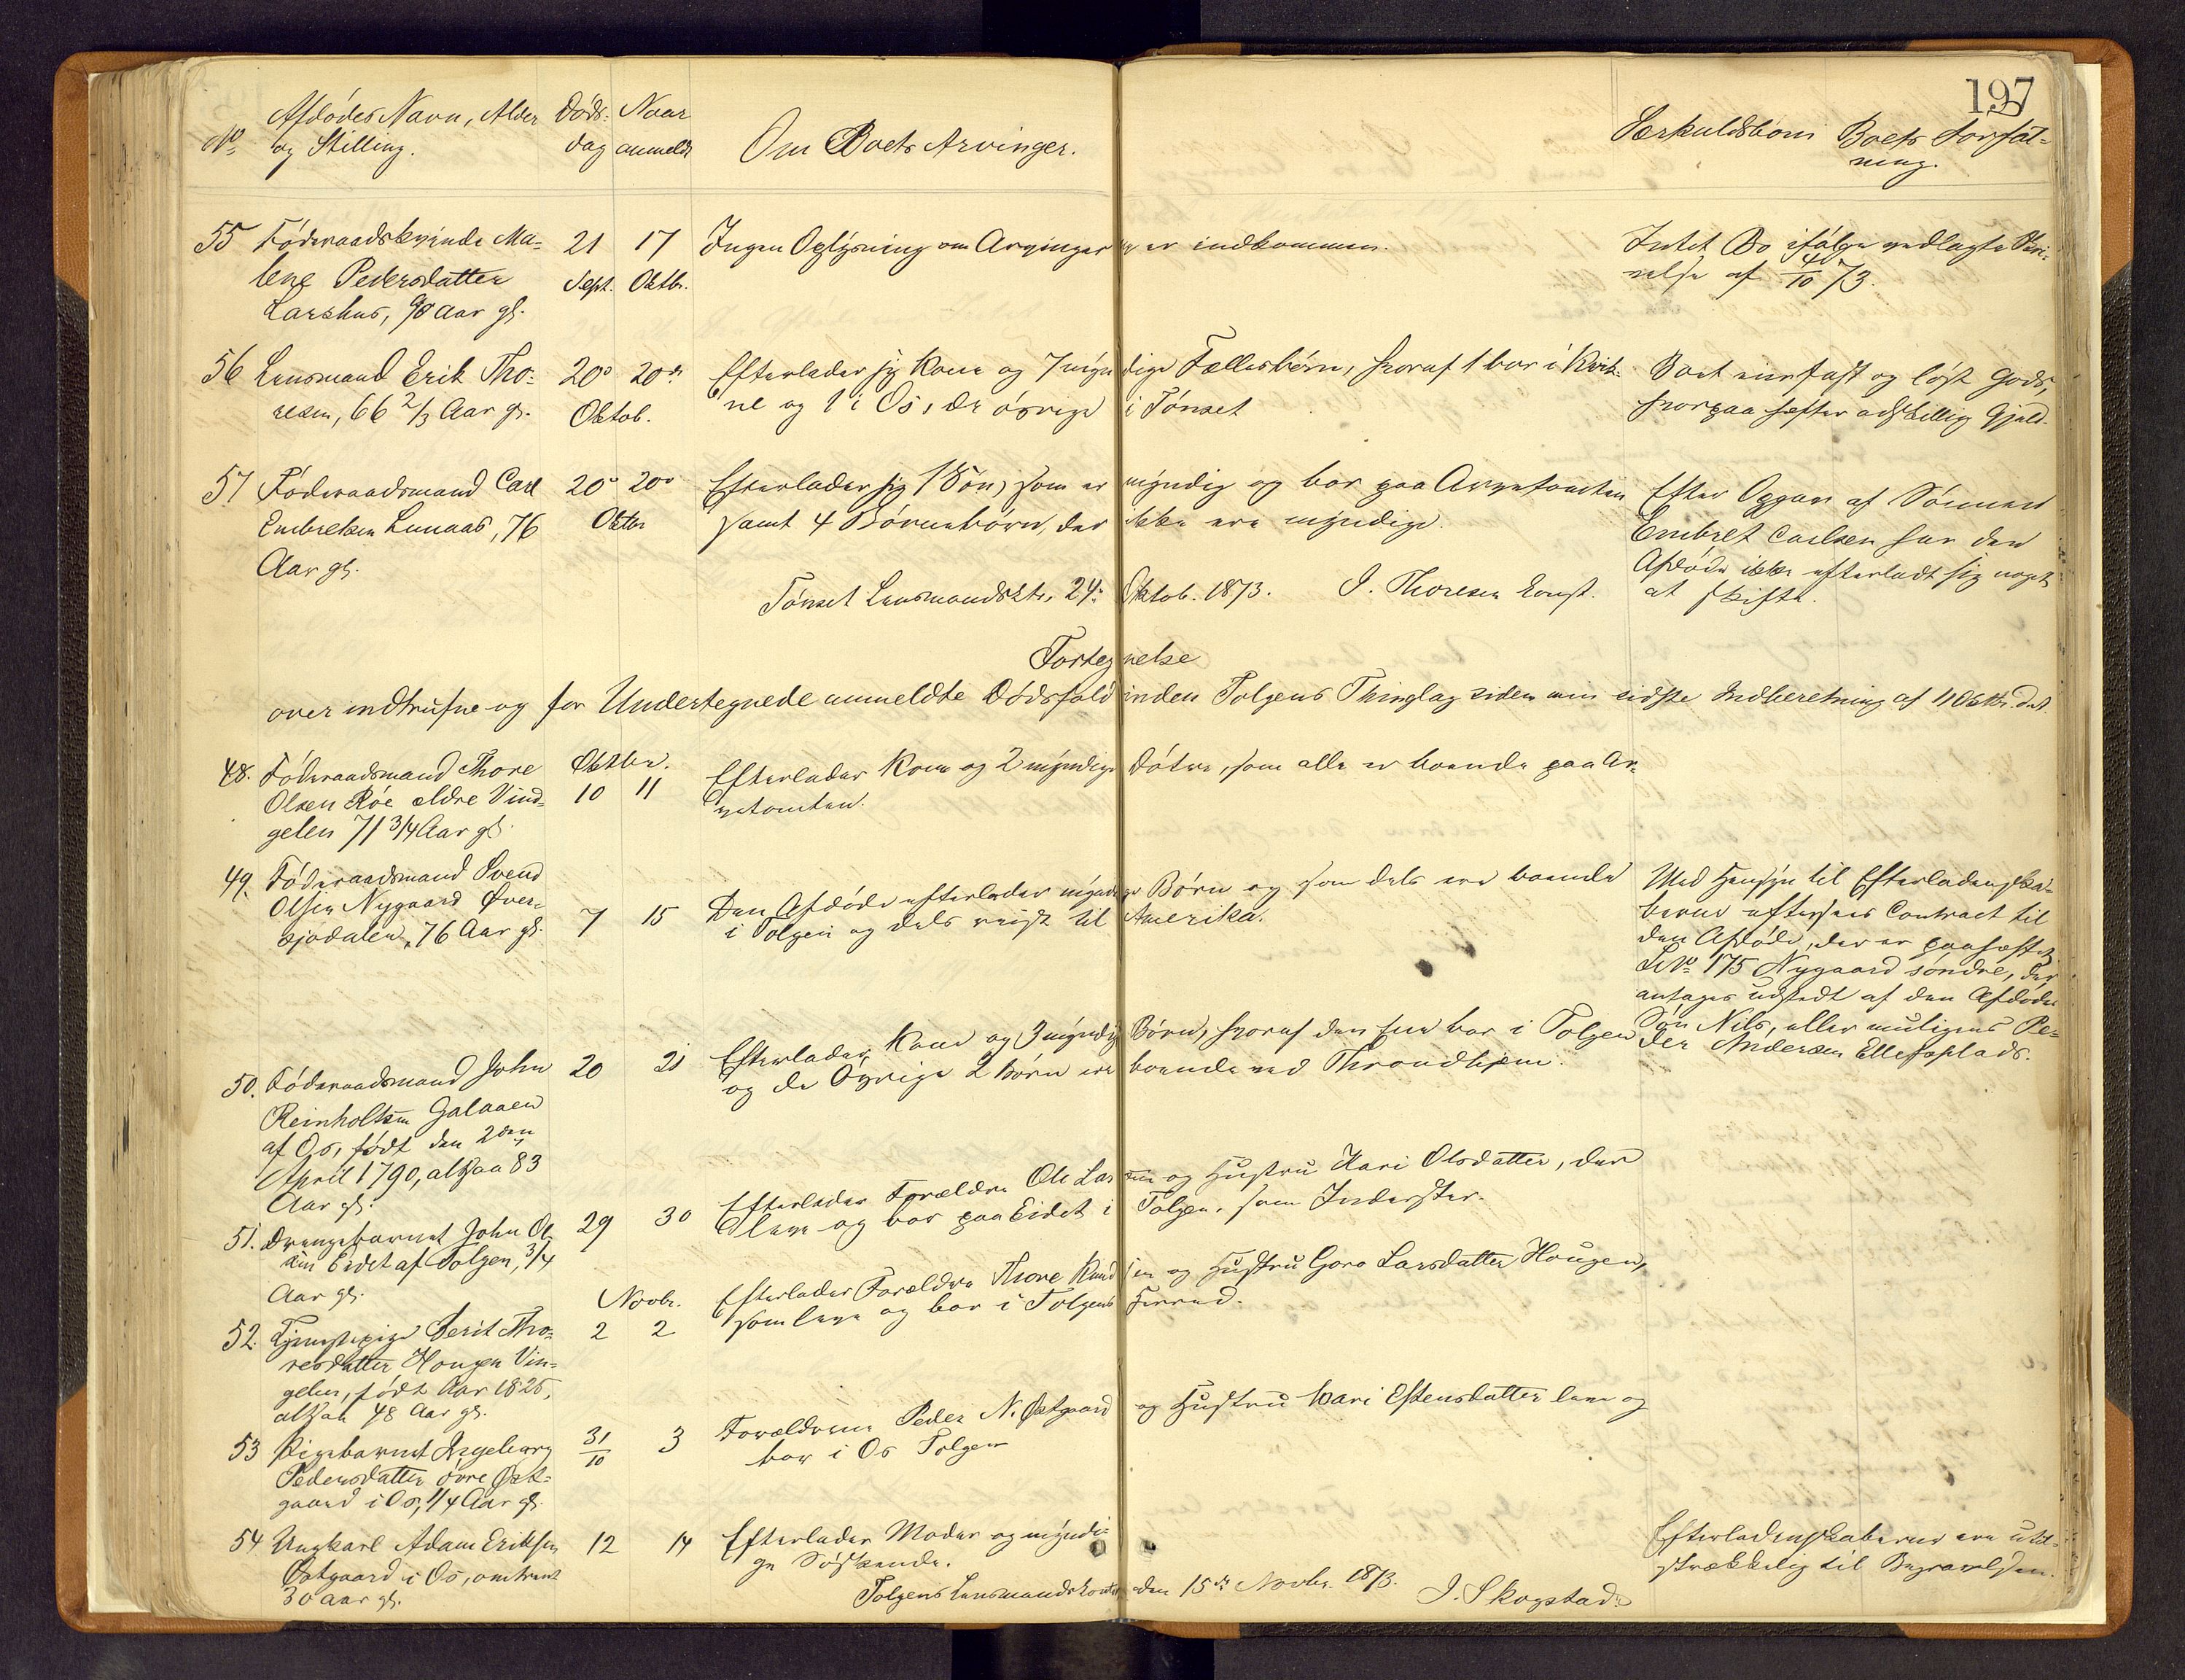 197
No Afdødes Navn, Alder og Stilling. Døds- dag Naar anmeldt Om Boets Arvinger. Særkuldsbørn Boets Forfat-
ning.
55 Føderaadskvinde Ma- 21 17 Ingen Oplysning om Arvinger er indkommen. Intet Bo ifølge vedlagte
lene Pedersdatter Sept. Oktbr. af 4/10 73.
Larshus, 90 Aar gl.
56 Lensmand Erik Tho- 20de 20de Efterlader sig Kone og 7 myndige Fællesbørn, hvoraf 1 bor i Kvik- Boet eier fast og løst Gods,
resen, 66 2/3 Aar gl. Oktob. ne og 1 i Os, de øvrige i Tønset hvorpaa hefter adskillig Gjæld.
57 Føderaadsmand Carl 20de 20de Efterlader sig 1 Søn, som er myndig og bor paa Arvetomten Efter Opgave af Sønnen
Embretsen Lunaas, 76 Oktbr samt 4 Børnebørn, der ikke ere myndige. Embret Carlsen har den
Aar gl. Afdøde ikke efterladt sig noget
Tønset Lensmandsktr. 24de Oktob. 1873. J. Thoresen konst. at skifte.
Fortegnelse
over indtrufne og for Undertegnede anmeldte Dødsfald inden Tolgens Thinglag siden min sidste Indberetning af 11 Oktbr. d.A.
48. Føderaadsmand Thore Oktbr. Efterlader Kone og 2 myndige Døtre, som alle er boende paa Ar-
Olsen Røe ældre Vind- 10 11 vetomten.
gelen 71 3/4 Aar gl.
49. Føderaadsmand Svend Den Afdøde efterlader myndige Børn og som dels ere boende Med Hensyn til Efterladenska-
Olsen Nygaard Øver- 7 15 i Tolgen og dels reist til Amerika. berne eftersees Contract til
sjødalen, 76 Aar gl. den Afdøde, der er paahæftet
LNo 175 Nygaard søndre, der
antages udstedt af den Afdødes
Søn Nils, eller muligens Pe-
der Andersen Ellefsplads.
50. Føderaadsmand John 20 21 Efterlader Kone og 3 myndige Børn, hvoraf den ene bor i Tolgen
Reinholtsen Galaaen og de Øvrige 2 Børn ere boende ved Throndhjem.
af Os, født den 2den
April 1790, altsaa 83
Aar gl.
51. Drengebarnet John Ol- 29 30 Efterlader Forældre Ole Larsen og Hustru Kari Olsdatter, der
sen Eidet af Tolgen, 3/4 leve og bor paa Eidet i Tolgen, som Inderster.
Aar gl.
52. Tjenestepige Berit Tho- Novbr. 2 2 Efterlader Forældre Thore Knudsen og Hustru Goro Larsdatter Hougen,
resdatter Hougen Vin- som leve og bor i Tolgens Herred.
gelen, født Aar 1825,
altsaa 48 Aar gl.
53 Pigebarnet Ingeborg 31/10 3 Forældrene Peder N. Østgaard og Hustru Kari Estensdatter leve og
Pedersdatter øvre Øst- bor i Os Tolgen
gaard i Os, 1/4 Aar gl.
54 Ungkarl Adam Eriksen 12 14 Efterlader Moder og myndi- Efterladenskaberne ere util-
Østgaard i Os, omtrent ge Søskende. strækkelig til Begravelsen.
30 Aar gl.
Tolgens Lensmandskontor den 15de Novbr. 1873. J. Skogstad